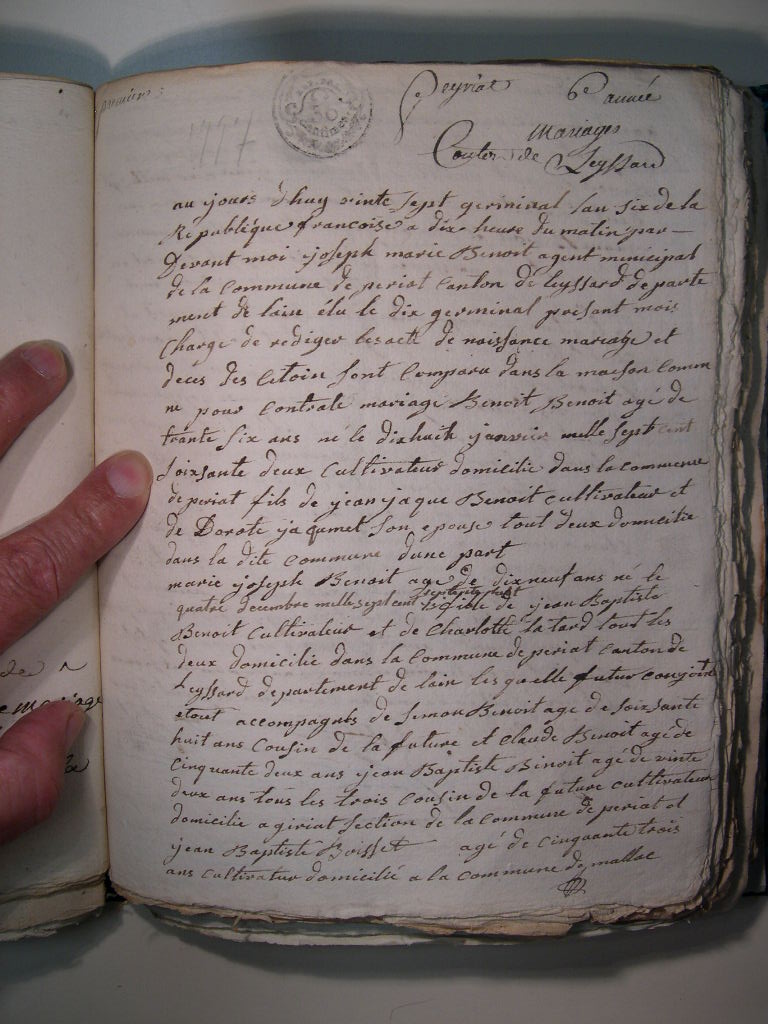 premiere
Peyriat 6e année
Mariages
Canton de Leyssard
au jours d'huy vinte sept germinal lan six de la
Republique francoise a dix heure du matin par
Devant moi joseph marie Benoit agent municipal
de la Commune de periat Canton de Leyssard departe
ment de lain élu le dix germinal present mois
Charge de rediger les acte de naissance mariage et
deces des Citoin sont Comparu dans la maison Commu
ne pour Contrate mariage Benoit Benoit agé de
trante six ans né le dixhuit janvier melle sept cent
soixsante deux Cultivateur domicilie dans la commune
de periat fils de jean jaque Benoit cultivateur et
de Dorote jaquemet son epouse tout deux domicilie
dans la dite Commune dune part
marie joseph Benoit age de dixneuf ans né le
quatre decembre melle sept cent fille de jean Baptiste
Benoit Cultivateur et de Charlotte la tard tout les
deux domicilie dans la Commune de periat Canton de
Leyssard departement de lain les quelle futur conjoint
etout accompagnés de Simon Benoit age de soixsante
huit ans Cousin de la future et Claude Benoit agé de
Cinquante deux ans jean Baptiste Binoit agé de vinte
deux ans tous les trois Cousin de la future cultivateur
domicilie a giriat section de la Commune de periat et
jean Baptiste Boisset agé de Cinquante trois
ans cultivateur domicilié a la Commune de mallac
de
mariage